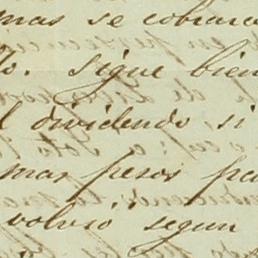 mas se cobrara
%. Sigue bien
l dividendo, si
mas pesos pa
volvio segun